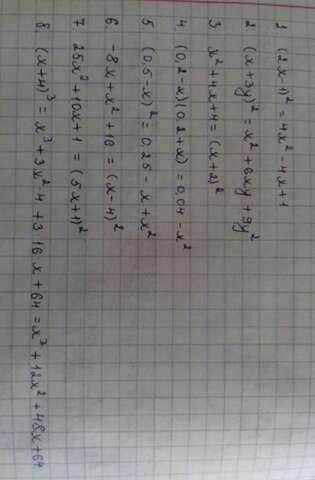 1 (2x-1)² = 4x² - 4x + 1
2 (x+3y)² = x² + 6xy + 9y²
3 x² + 4x + 4 = (x+2)²
4. (0,2-x)(0,2+x) = 0,04 - x²
5. (0,5-x)² = 0,25 - x + x²
6. -8x + x² + 16 = (x-4)²
7. 25x² + 10x + 1 = (5x+1)²
8. (x+4)³ = x³ + 3x²·4 + 3·16x + 64 = x³ + 12x² + 48x + 64